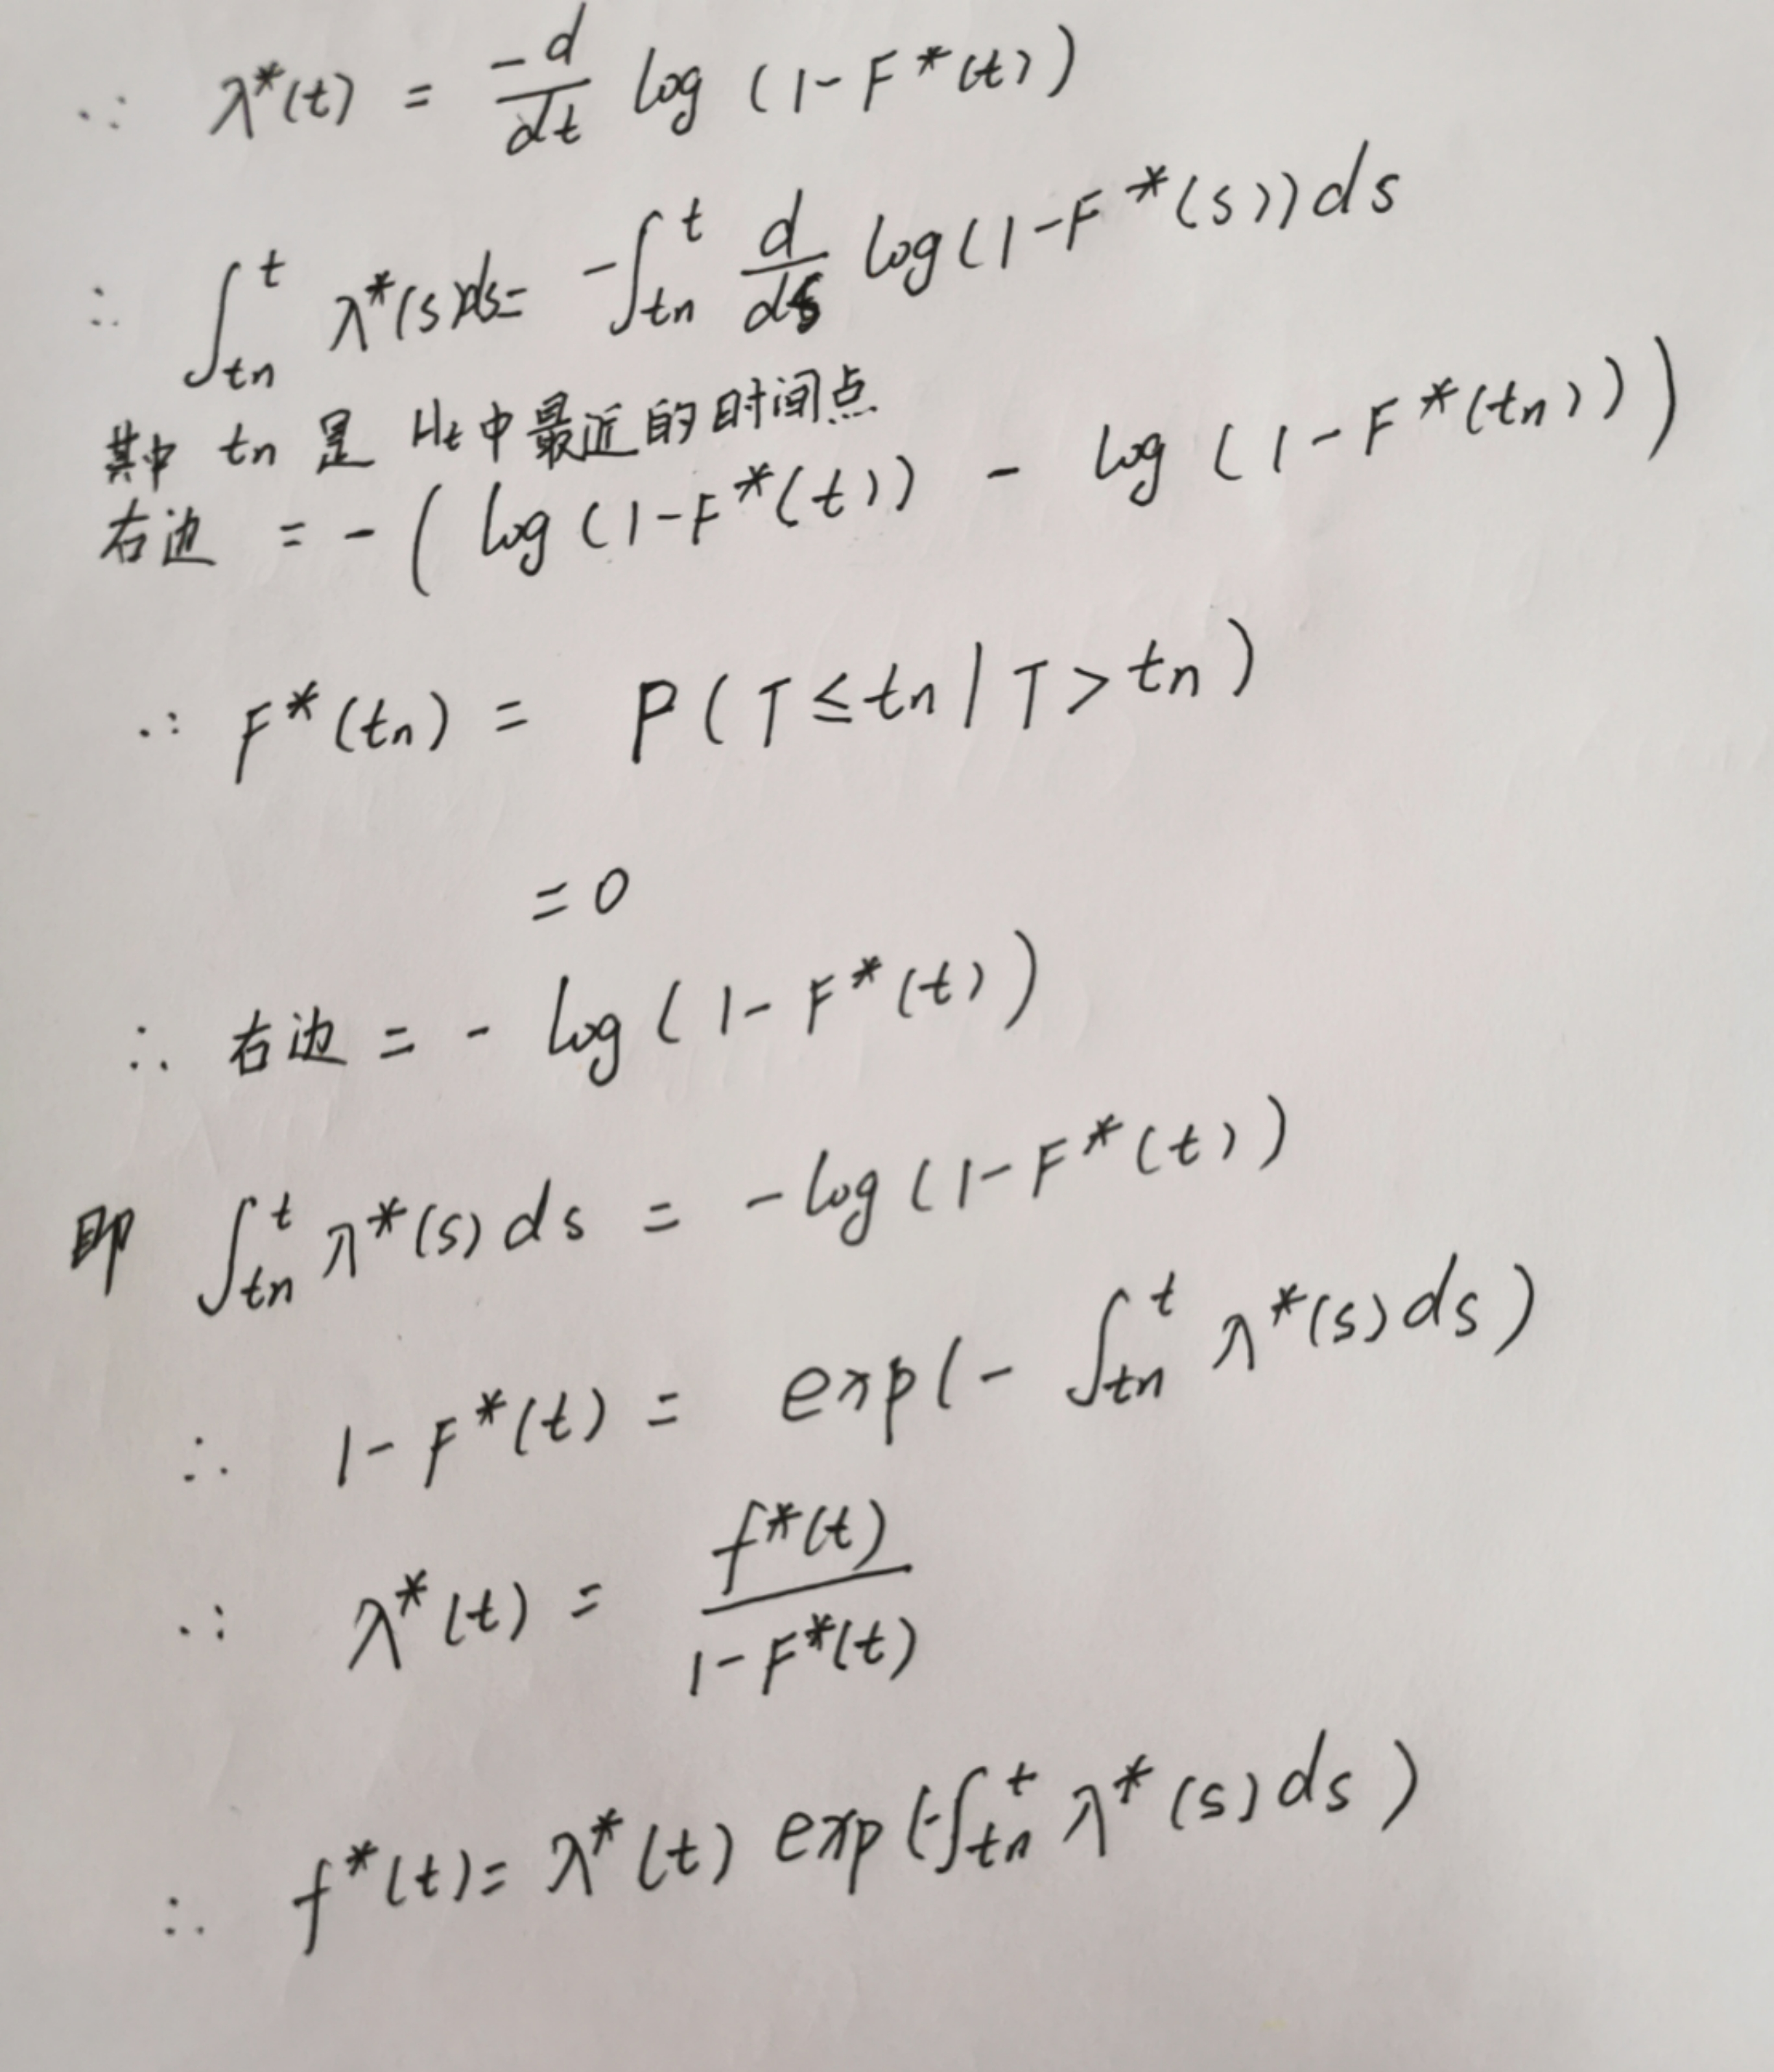 ∵ λ*(t) = -d/dt log (1-F*(t))
∴ ∫_{tn}^{t} λ*(s)ds = -∫_{tn}^{t} d/ds log(1-F*(s))ds
其中 tn 是 Ht中最近的时间点
右边 = -( log (1-F*(t)) - log (1-F*(tn)))
∵ F*(tn) = P(T≤tn|T>tn)
=0
∴ 右边 = - log(1-F*(t))
即 ∫_{tn}^{t} λ*(s)ds = -log(1-F*(t))
∴ 1-F*(t) = exp(-∫_{tn}^{t} λ*(s)ds)
∵ λ*(t) = f*(t)/1-F*(t)
∴ f*(t) = λ*(t) exp(-∫_{tn}^{t} λ*(s)ds)